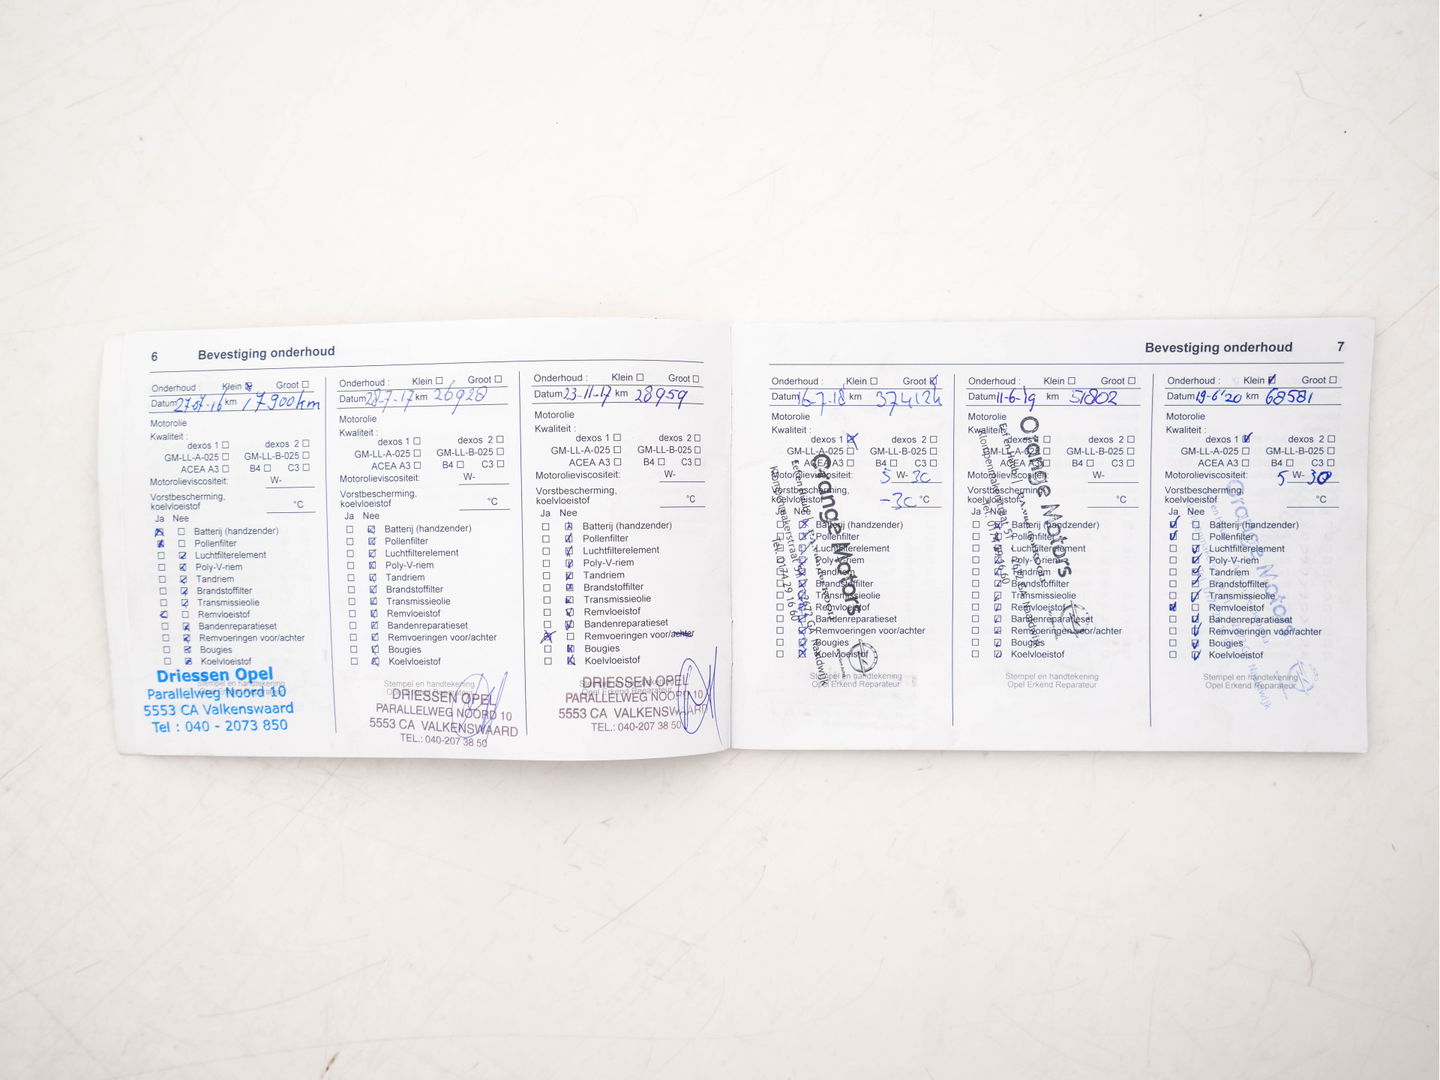 6 Bevestiging onderhoud
Onderhoud : Klein Groot
Datum 27-07-16 km 17900km
Motorolie
Kwaliteit :
dexos 1 dexos 2
GM-LL-A-025 GM-LL-B-025
ACEA A3 B4 C3
Motorolieviscositeit: W-
Vorstbescherming,
koelvloeistof °C
Ja Nee
Batterij (handzender)
Pollenfilter
Luchtfilterelement
Poly-V-riem
Tandriem
Brandstoffilter
Transmissieolie
Remvloeistof
Bandenreparatieset
Remvoeringen voor/achter
Bougies
Koelvloeistof
Stempel en handtekening
Opel Erkend Reparateur
Driessen Opel
Parallelweg Noord 10
5553 CA Valkenswaard
Tel : 040 - 2073 850
Onderhoud : Klein Groot
Datum 28-7-17 km 26928
Motorolie
Kwaliteit :
dexos 1 dexos 2
GM-LL-A-025 GM-LL-B-025
ACEA A3 B4 C3
Motorolieviscositeit: W-
Vorstbescherming,
koelvloeistof °C
Ja Nee
Batterij (handzender)
Pollenfilter
Luchtfilterelement
Poly-V-riem
Tandriem
Brandstoffilter
Transmissieolie
Remvloeistof
Bandenreparatieset
Remvoeringen voor/achter
Bougies
Koelvloeistof
Stempel en handtekening
Opel Erkend Reparateur
DRIESSEN OPEL
PARALLELWEG NOORD 10
5553 CA VALKENSWAARD
TEL.: 040-207 38 50
Onderhoud : Klein Groot
Datum 23-11-17 km 28959
Motorolie
Kwaliteit :
dexos 1 dexos 2
GM-LL-A-025 GM-LL-B-025
ACEA A3 B4 C3
Motorolieviscositeit: W-
Vorstbescherming,
koelvloeistof °C
Ja Nee
Batterij (handzender)
Pollenfilter
Luchtfilterelement
Poly-V-riem
Tandriem
Brandstoffilter
Transmissieolie
Remvloeistof
Bandenreparatieset
Remvoeringen voor/achter
Bougies
Koelvloeistof
Stempel en handtekening
Opel Erkend Reparateur
DRIESSEN OPEL
PARALLELWEG NOORD 10
5553 CA VALKENSWAARD
TEL.: 040-207 38 50
Bevestiging onderhoud 7
Onderhoud : Klein Groot
Datum 16-7-18 km
Motorolie
Kwaliteit :
dexos 1 dexos 2
GM-LL-A-025 GM-LL-B-025
ACEA A3 B4 C3
Motorolieviscositeit: 5 W- 30
Vorstbescherming,
koelvloeistof -30 °C
Ja Nee
Batterij (handzender)
Pollenfilter
Luchtfilterelement
Poly-V-riem
Tandriem
Brandstoffilter
Transmissieolie
Remvloeistof
Bandenreparatieset
Remvoeringen voor/achter
Bougies
Koelvloeistof
Stempel en handtekening
Opel Erkend Reparateur
Orange Motors
Naaldwijk
Onderhoud : Klein Groot
Datum 11-6-19 km 51802
Motorolie
Kwaliteit :
dexos 2
GM-LL-A-025 GM-LL-B-025
ACEA A3 B4 C3
Motorolieviscositeit: W-
Vorstbescherming,
koelvloeistof °C
Ja Nee
Batterij (handzender)
Pollenfilter
Luchtfilterelement
Poly-V-riem
Tandriem
Brandstoffilter
Transmissieolie
Remvloeistof
Bandenreparatieset
Remvoeringen voor/achter
Bougies
Koelvloeistof
Stempel en handtekening
Opel Erkend Reparateur
Orange Motors
Naaldwijk
Onderhoud : Klein Groot
Datum 19-6'20 km 68581
Motorolie
Kwaliteit :
dexos 1 dexos 2
GM-LL-A-025 GM-LL-B-025
ACEA A3 B4 C3
Motorolieviscositeit: 5 W- 30
Vorstbescherming,
koelvloeistof °C
Ja Nee
Batterij (handzender)
Pollenfilter
Luchtfilterelement
Poly-V-riem
Tandriem
Brandstoffilter
Transmissieolie
Remvloeistof
Bandenreparatieset
Remvoeringen voor/achter
Bougies
Koelvloeistof
Stempel en handtekening
Opel Erkend Reparateur
Orange Motors